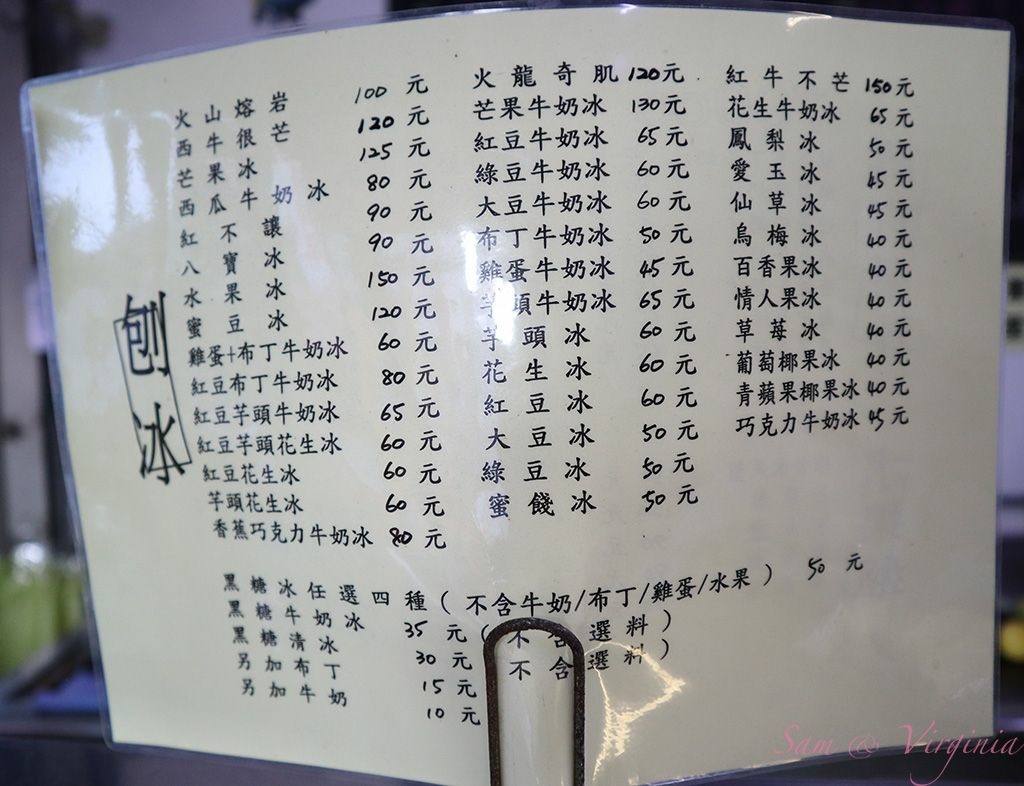 刨冰
火山熔岩 100元
西牛很芒 120元
芒果冰 125元
西瓜牛奶冰 80元
紅不讓 90元
八寶冰 90元
水果冰 150元
蜜豆冰 120元
雞蛋+布丁牛奶冰 60元
紅豆布丁牛奶冰 80元
紅豆芋頭牛奶冰 65元
紅豆芋頭花生冰 60元
紅豆花生冰 60元
芋頭花生冰 60元
香蕉巧克力牛奶冰 80元
火龍奇肌 120元
芒果牛奶冰 130元
紅豆牛奶冰 65元
綠豆牛奶冰 60元
大豆牛奶冰 60元
布丁牛奶冰 50元
雞蛋牛奶冰 45元
芋頭牛奶冰 65元
芋頭冰 60元
花生冰 60元
紅豆冰 60元
大豆冰 50元
綠豆冰 50元
蜜餞冰 50元
紅牛不芒 150元
花生牛奶冰 65元
鳳梨冰 50元
愛玉冰 45元
仙草冰 45元
烏梅冰 40元
百香果冰 40元
情人果冰 40元
草莓冰 40元
葡萄椰果冰 40元
青蘋果椰果冰 40元
巧克力牛奶冰 45元
黑糖冰任選四種(不含牛奶/布丁/雞蛋/水果) 50元
黑糖牛奶冰 35元(不含選料)
黑糖清冰 30元 不含選料)
另加布丁 15元
另加牛奶 10元
Sam @ Virginia